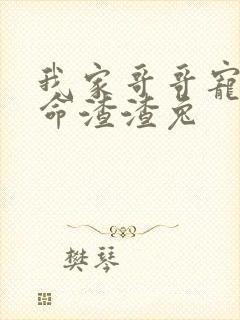 我家哥哥宠
命渣渣兔
樊琴